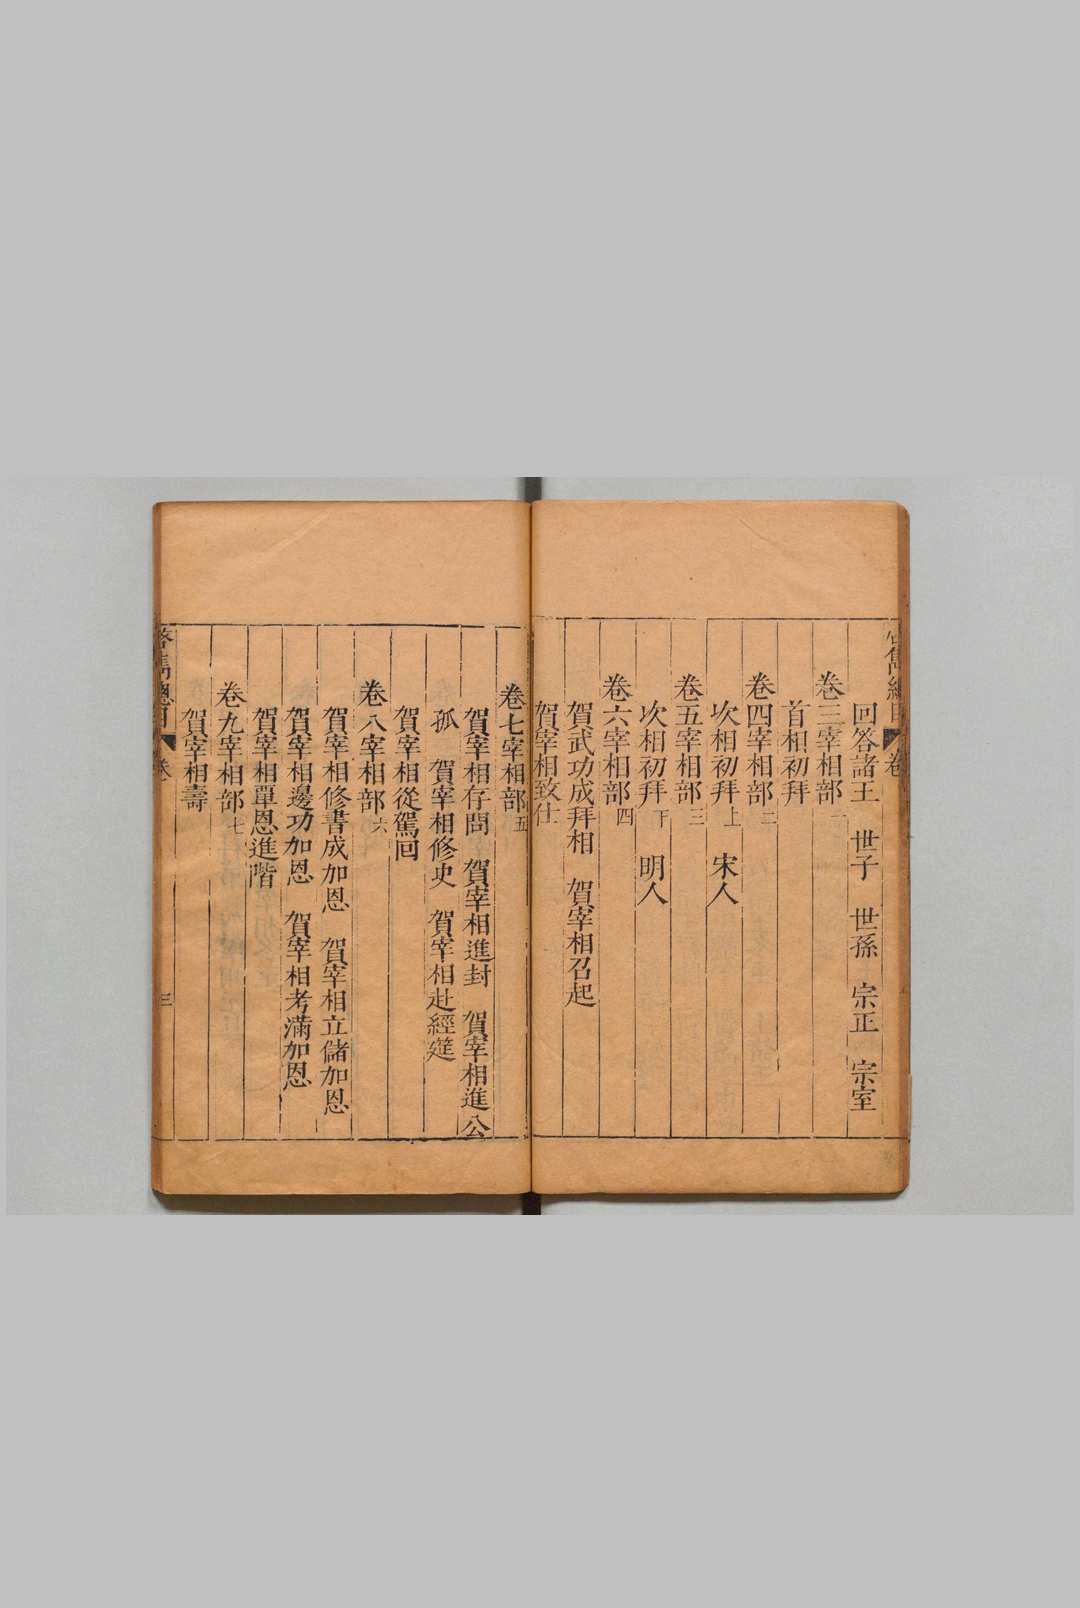 回答諸王 世子 世孫 宗正 宗室
卷三宰相部一
首相初拜
卷四宰相部二
次相初拜上 宋人
卷五宰相部三
次相初拜下 明人
卷六宰相部四
賀武功成拜相 賀宰相召起
賀宰相致仕
卷七宰相部五
賀宰相存問 賀宰相進封 賀宰相進公
孤 賀宰相修史 賀宰相赴經筵
賀宰相從駕回
卷八宰相部六
賀宰相修書成加恩 賀宰相立儲加恩
賀宰相邊功加恩 賀宰相考滿加恩
賀宰相覃恩進階
卷九宰相部七
賀宰相壽
啓雋總目 卷 三